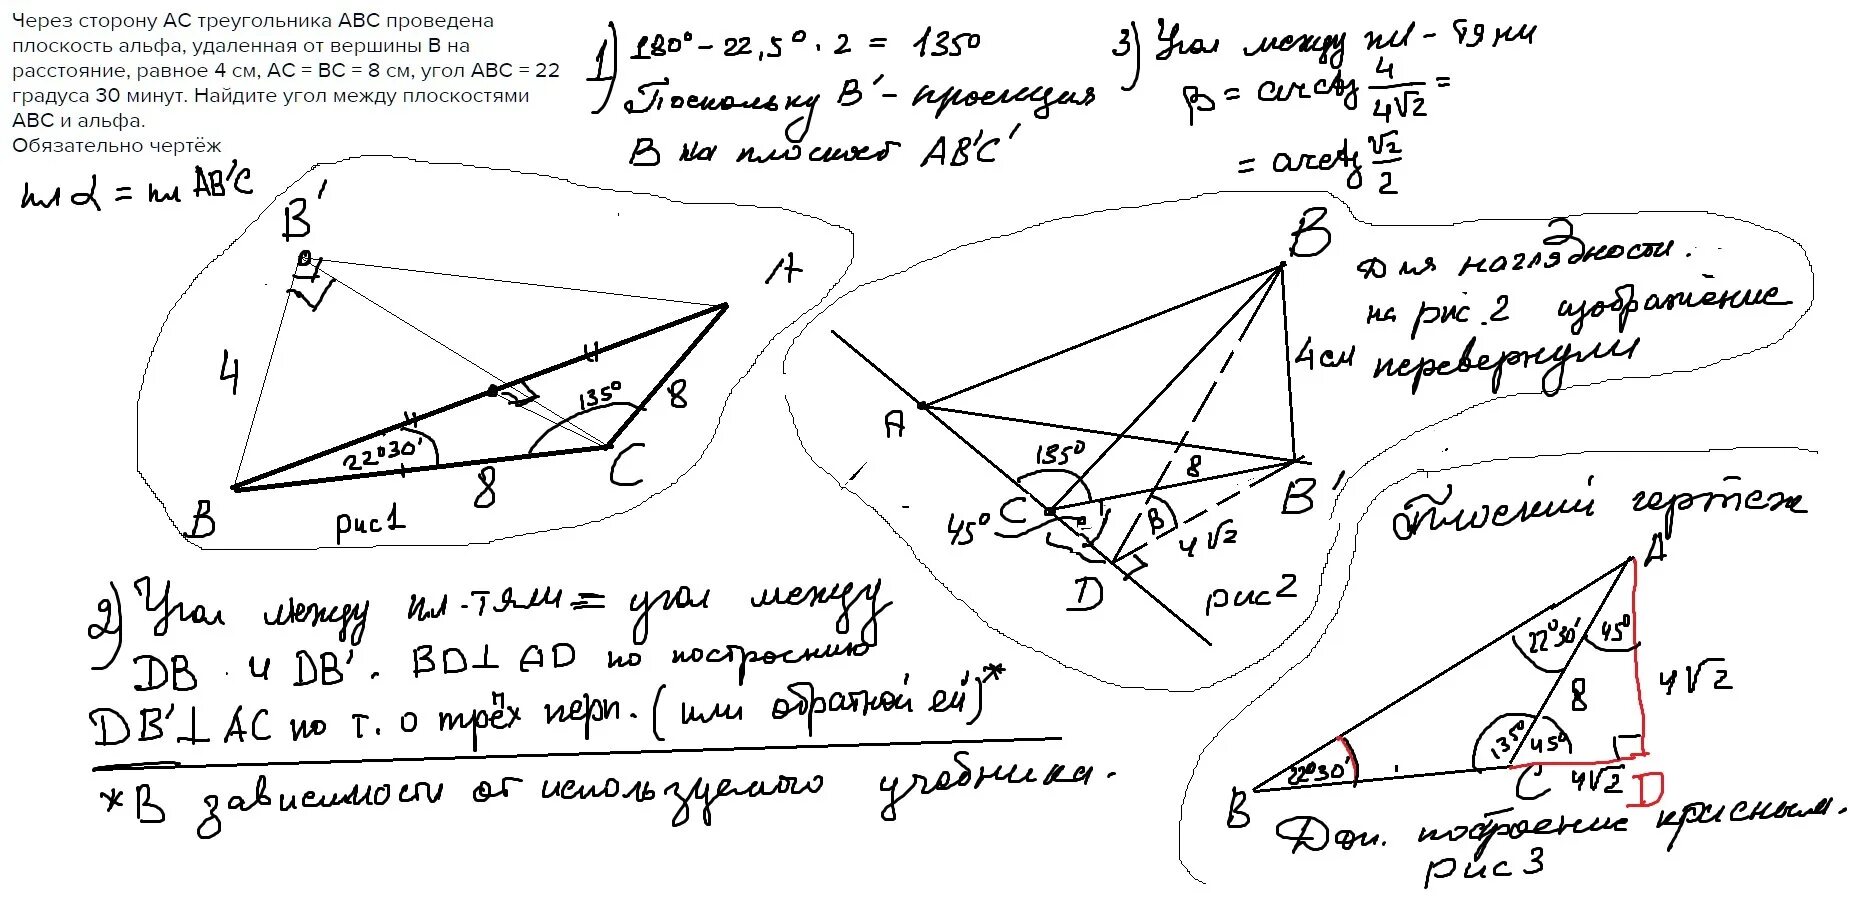 Через сторону АС треугольника АВС проведена
плоскость альфа, удаленная от вершины В на
расстояние, равное 4 см, АС = ВС = 8 см, угол АВС = 22
градуса 30 минут. Найдите угол между плоскостями
АВС и альфа.
Обязательно чертёж
пл α = пл AB'C
1) 180° - 22,5° · 2 = 135°
Поскольку B' - проекция
B на плоскост AB'C'
3) Угол между пл-тями
β = arctg 4/4√2 =
= arctg √2/2
B'
A
4
135°
8
22°30'
8
C
B
рис1
B
Для наглядности.
на рис. 2 изображение
перевернули
4 см
A
135°
8
C
B'
45°
β
4√2
D
рис 2
2) Угол между пл-тями = угол между
DB и DB'. BD⊥AD по построению
DB'⊥AC по т. о трёх перп. (или обратной ей)*
*В зависимости от используемого учебника.
Плоский чертеж
A
22°30'
45°
8
4√2
135°
45°
22°30'
B
C
4√2
D
Доп. построение красным.
рис 3